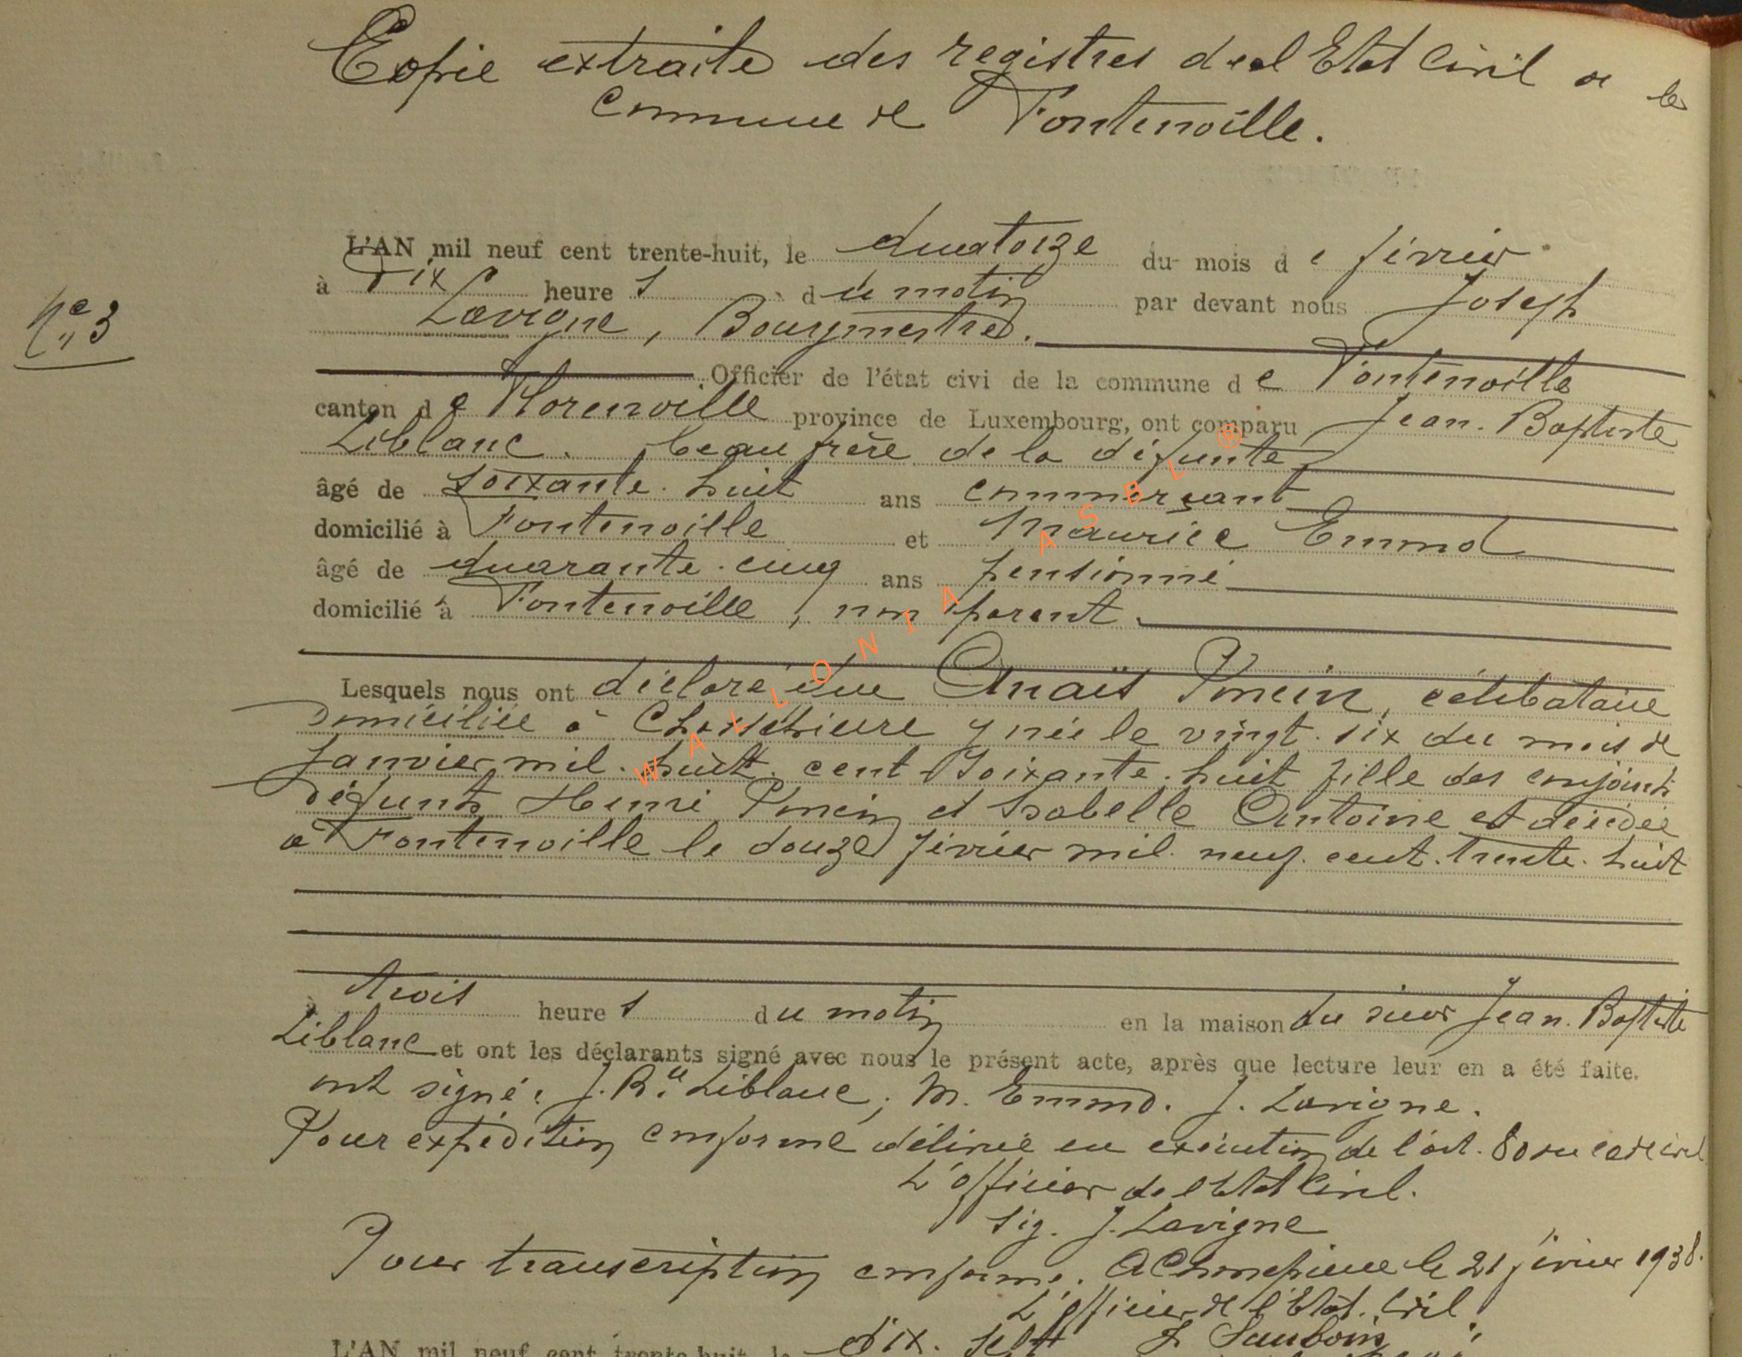 Copie extraite des registres de l Etat Civil de la
commune de Fontenoille.
L'AN mil neuf cent trente-huit, le quatorze du mois de février
à dix heures du matin par devant nous Joseph
Nº 3
Lavigne, Bourgmestre.
Officier de l'état civi de la commune de Fontenoille
canton de Florenville province de Luxembourg, ont comparu Jean-Baptiste
Leblanc. beau frère de la défunte,
âgé de soixante-huit ans commerçant
domicilié à Fontenoille et Maurice Emmd
âgé de quarante-cinq ans pensionné
domicilié à Fontenoille, non parent.
Lesquels nous ont déclaré que Anaïs Poncin, célibataire
domiciliée à Chassepierre y née le vingt-six du mois de
Janvier mil-huit-cent-soixante-huit fille des conjoints
défunts Henri Poncin et Isabelle Antoine est décédée
à Fontenoille le douze février mil neuf cent trente-huit
à trois heures du matin en la maison du sieur Jean-Baptiste
Leblanc et ont les déclarants signé avec nous le présent acte, après que lecture leur en a été faite.
ont signé: J. Bte Leblanc; M. Emmd. J. Lavigne.
Pour expédition conforme délivrée en exécution de l'art. 80 du code civil
L'officier de l'Etat Civil.
sig. J. Lavigne
Pour transcription conforme. A Chassepierre le 21 février 1938.
L'officier de l'Etat. Civil
L'AN mil neuf cent trente-huit, le dix-sept
WALLONIA ASBL ®